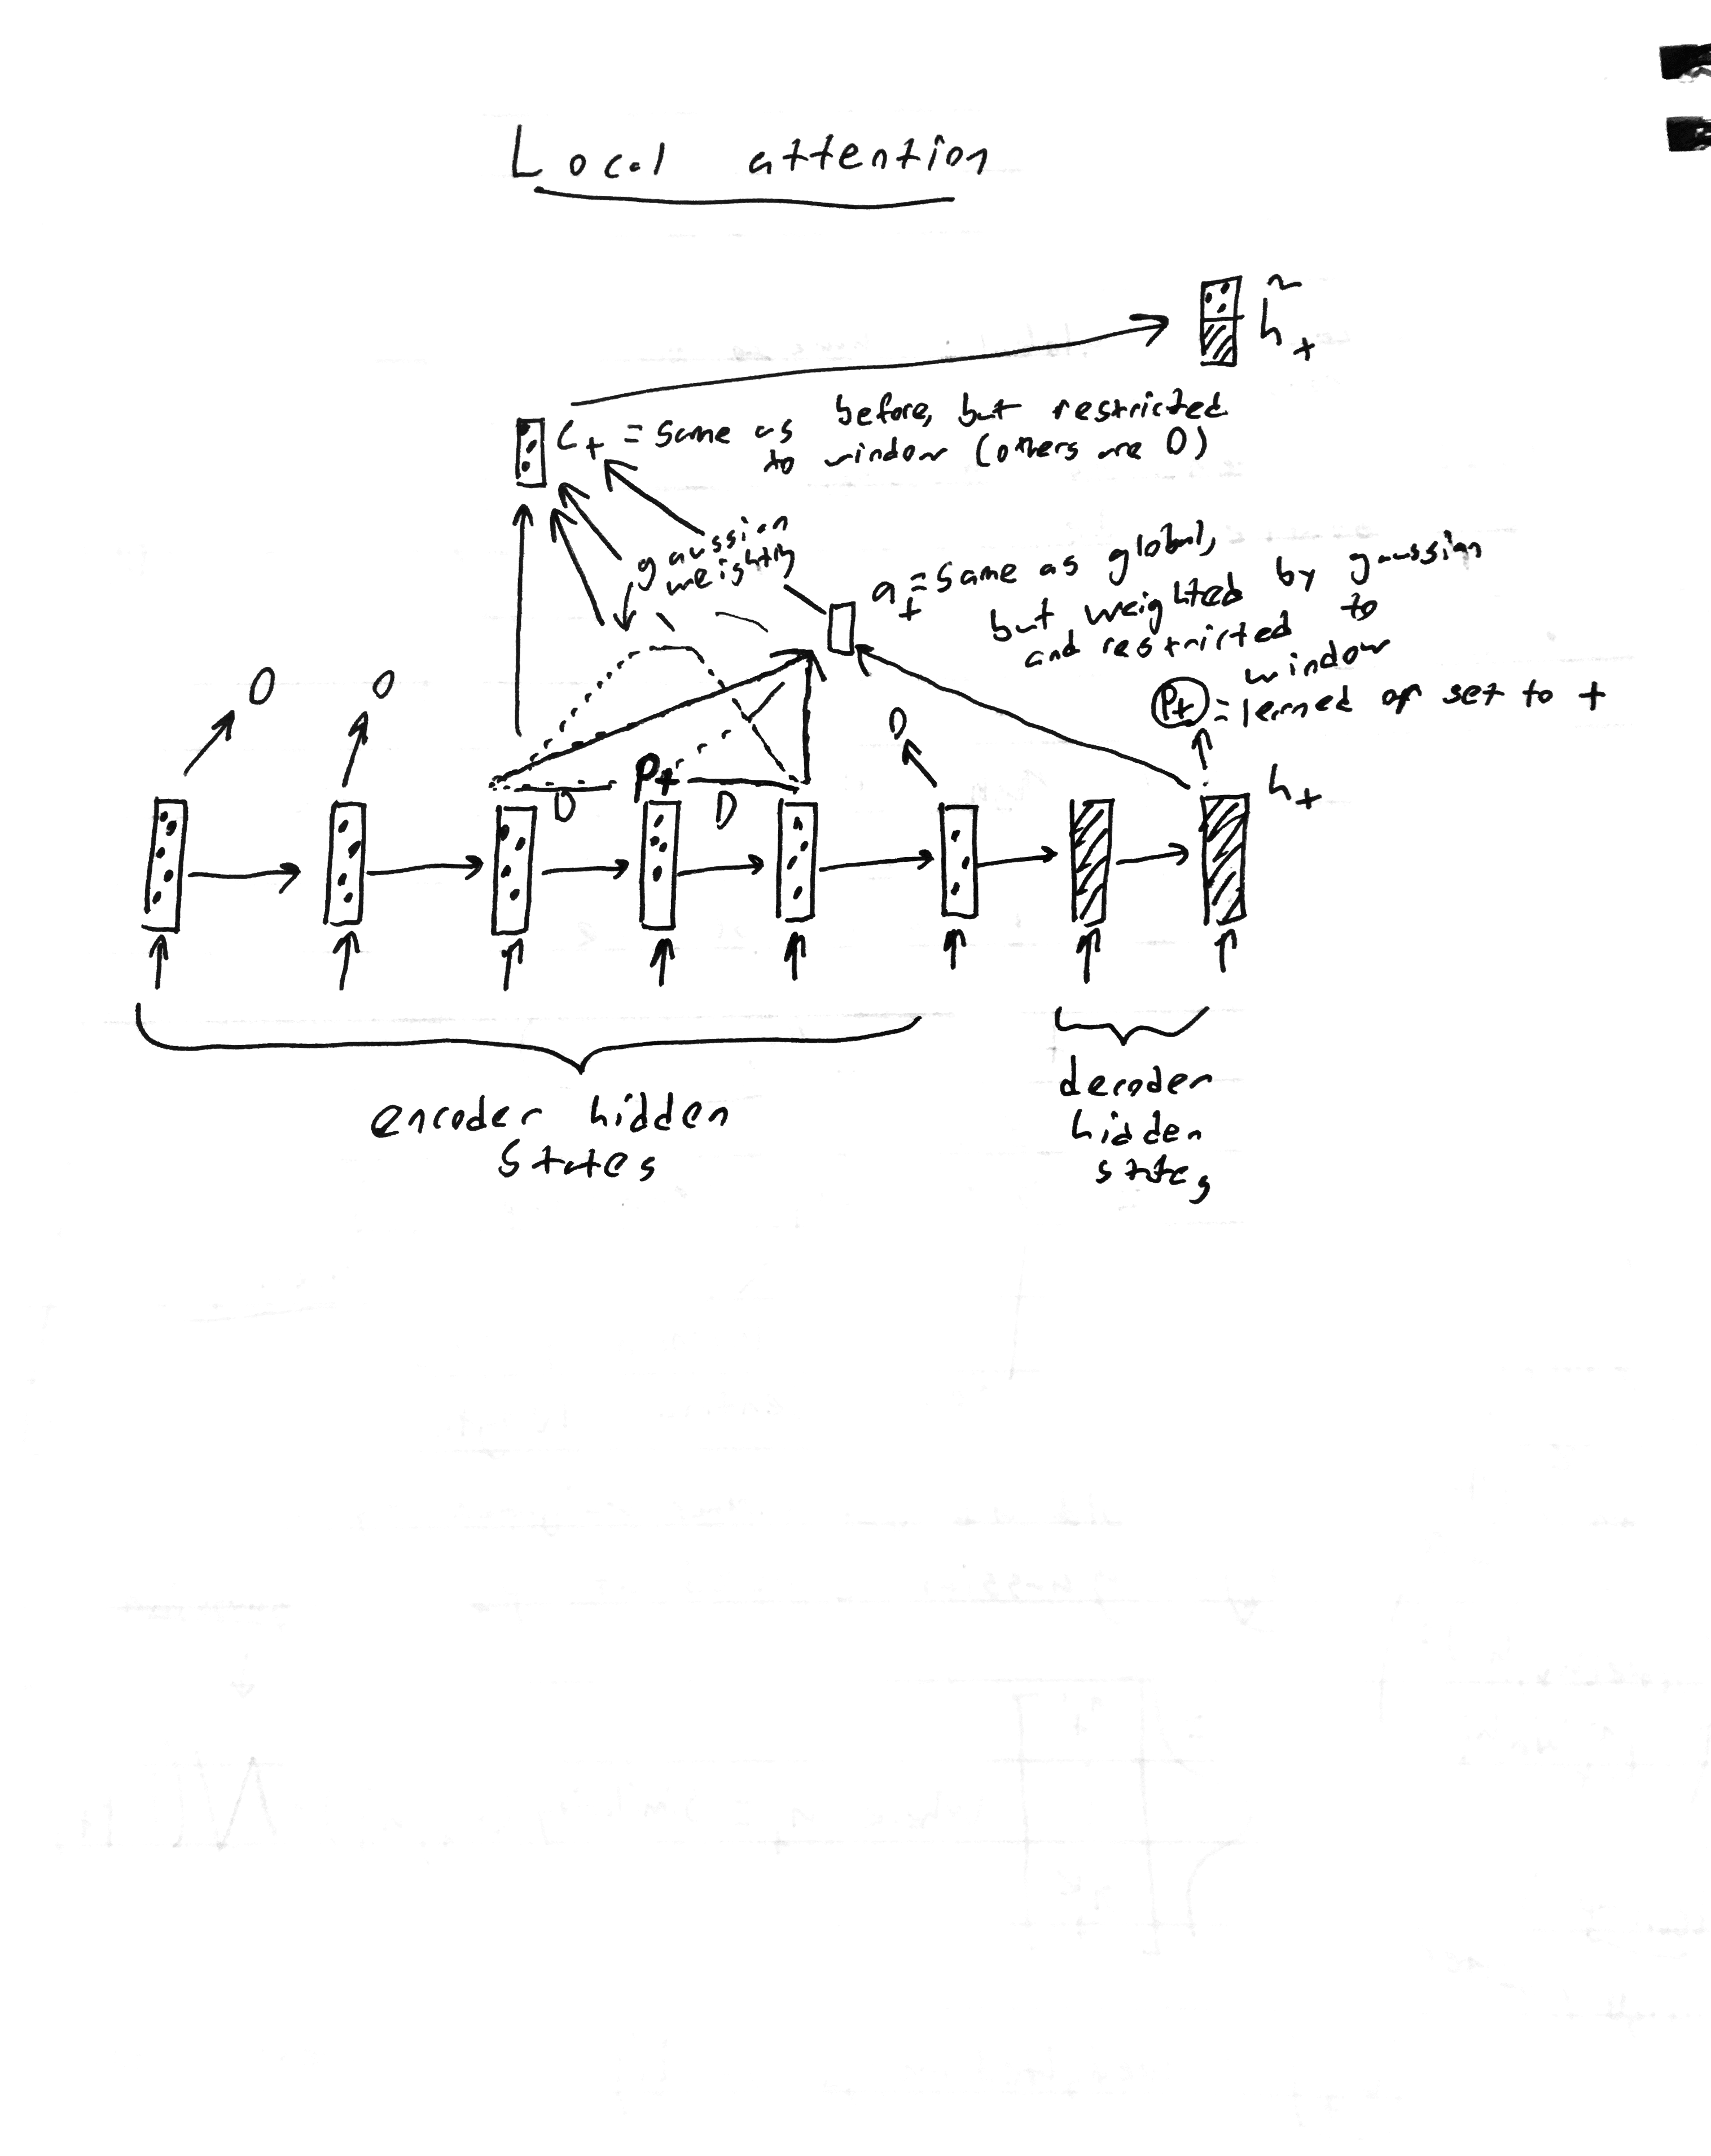 Local attention
h̃t
ct = same as before, but restricted
to window (others are 0)
gaussian
weighting
at = same as global,
but weighted by gaussian
and restricted to
window
pt = learned or set to t
0
0
0
pt
D
D
ht
encoder hidden
states
decoder
hidden
states